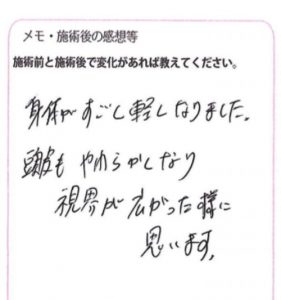 メモ・施術後の感想等
施術前と施術後で変化があれば教えてください。
身体がすごく軽くなりました。
頭皮も やわらかくなり
視界が広がった様に
思います。